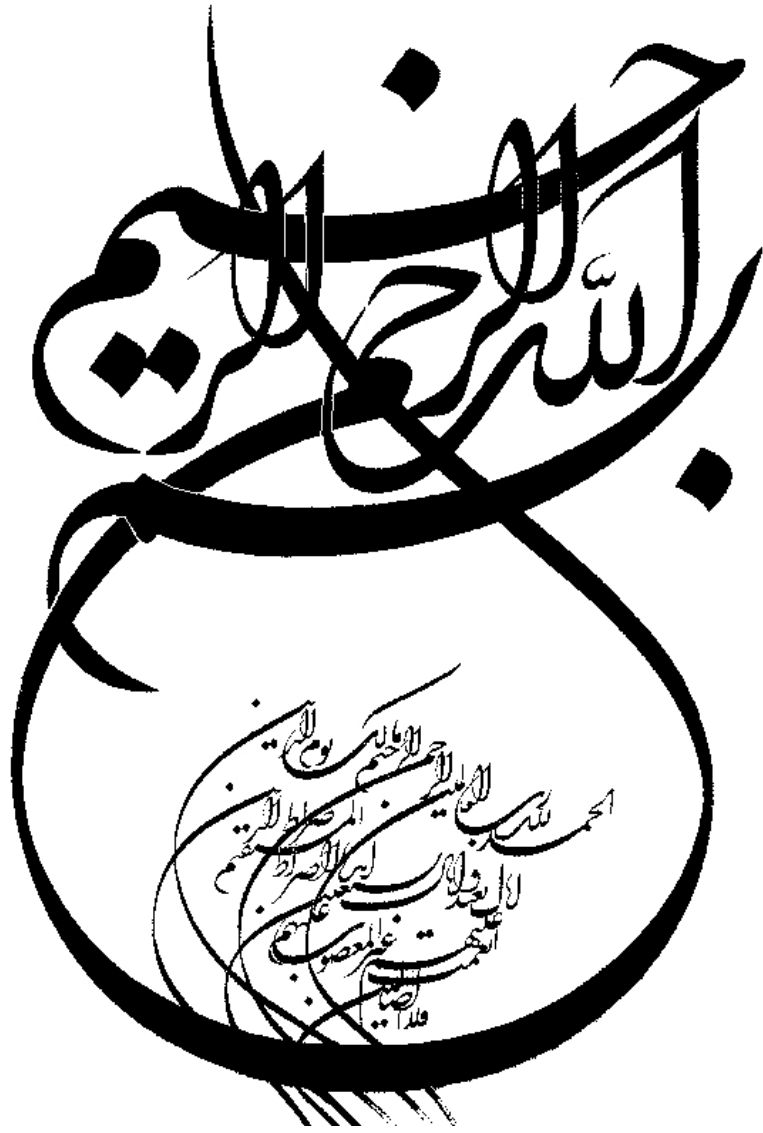 بسم الله الرحمن الرحيم
الحمد لله رب العالمين
الرحمن الرحيم
مالك يوم الدين
اياك نعبد و اياك نستعين
اهدنا الصراط المستقيم
صراط الذين
انعمت عليهم غير المغضوب عليهم
ولا الضالين